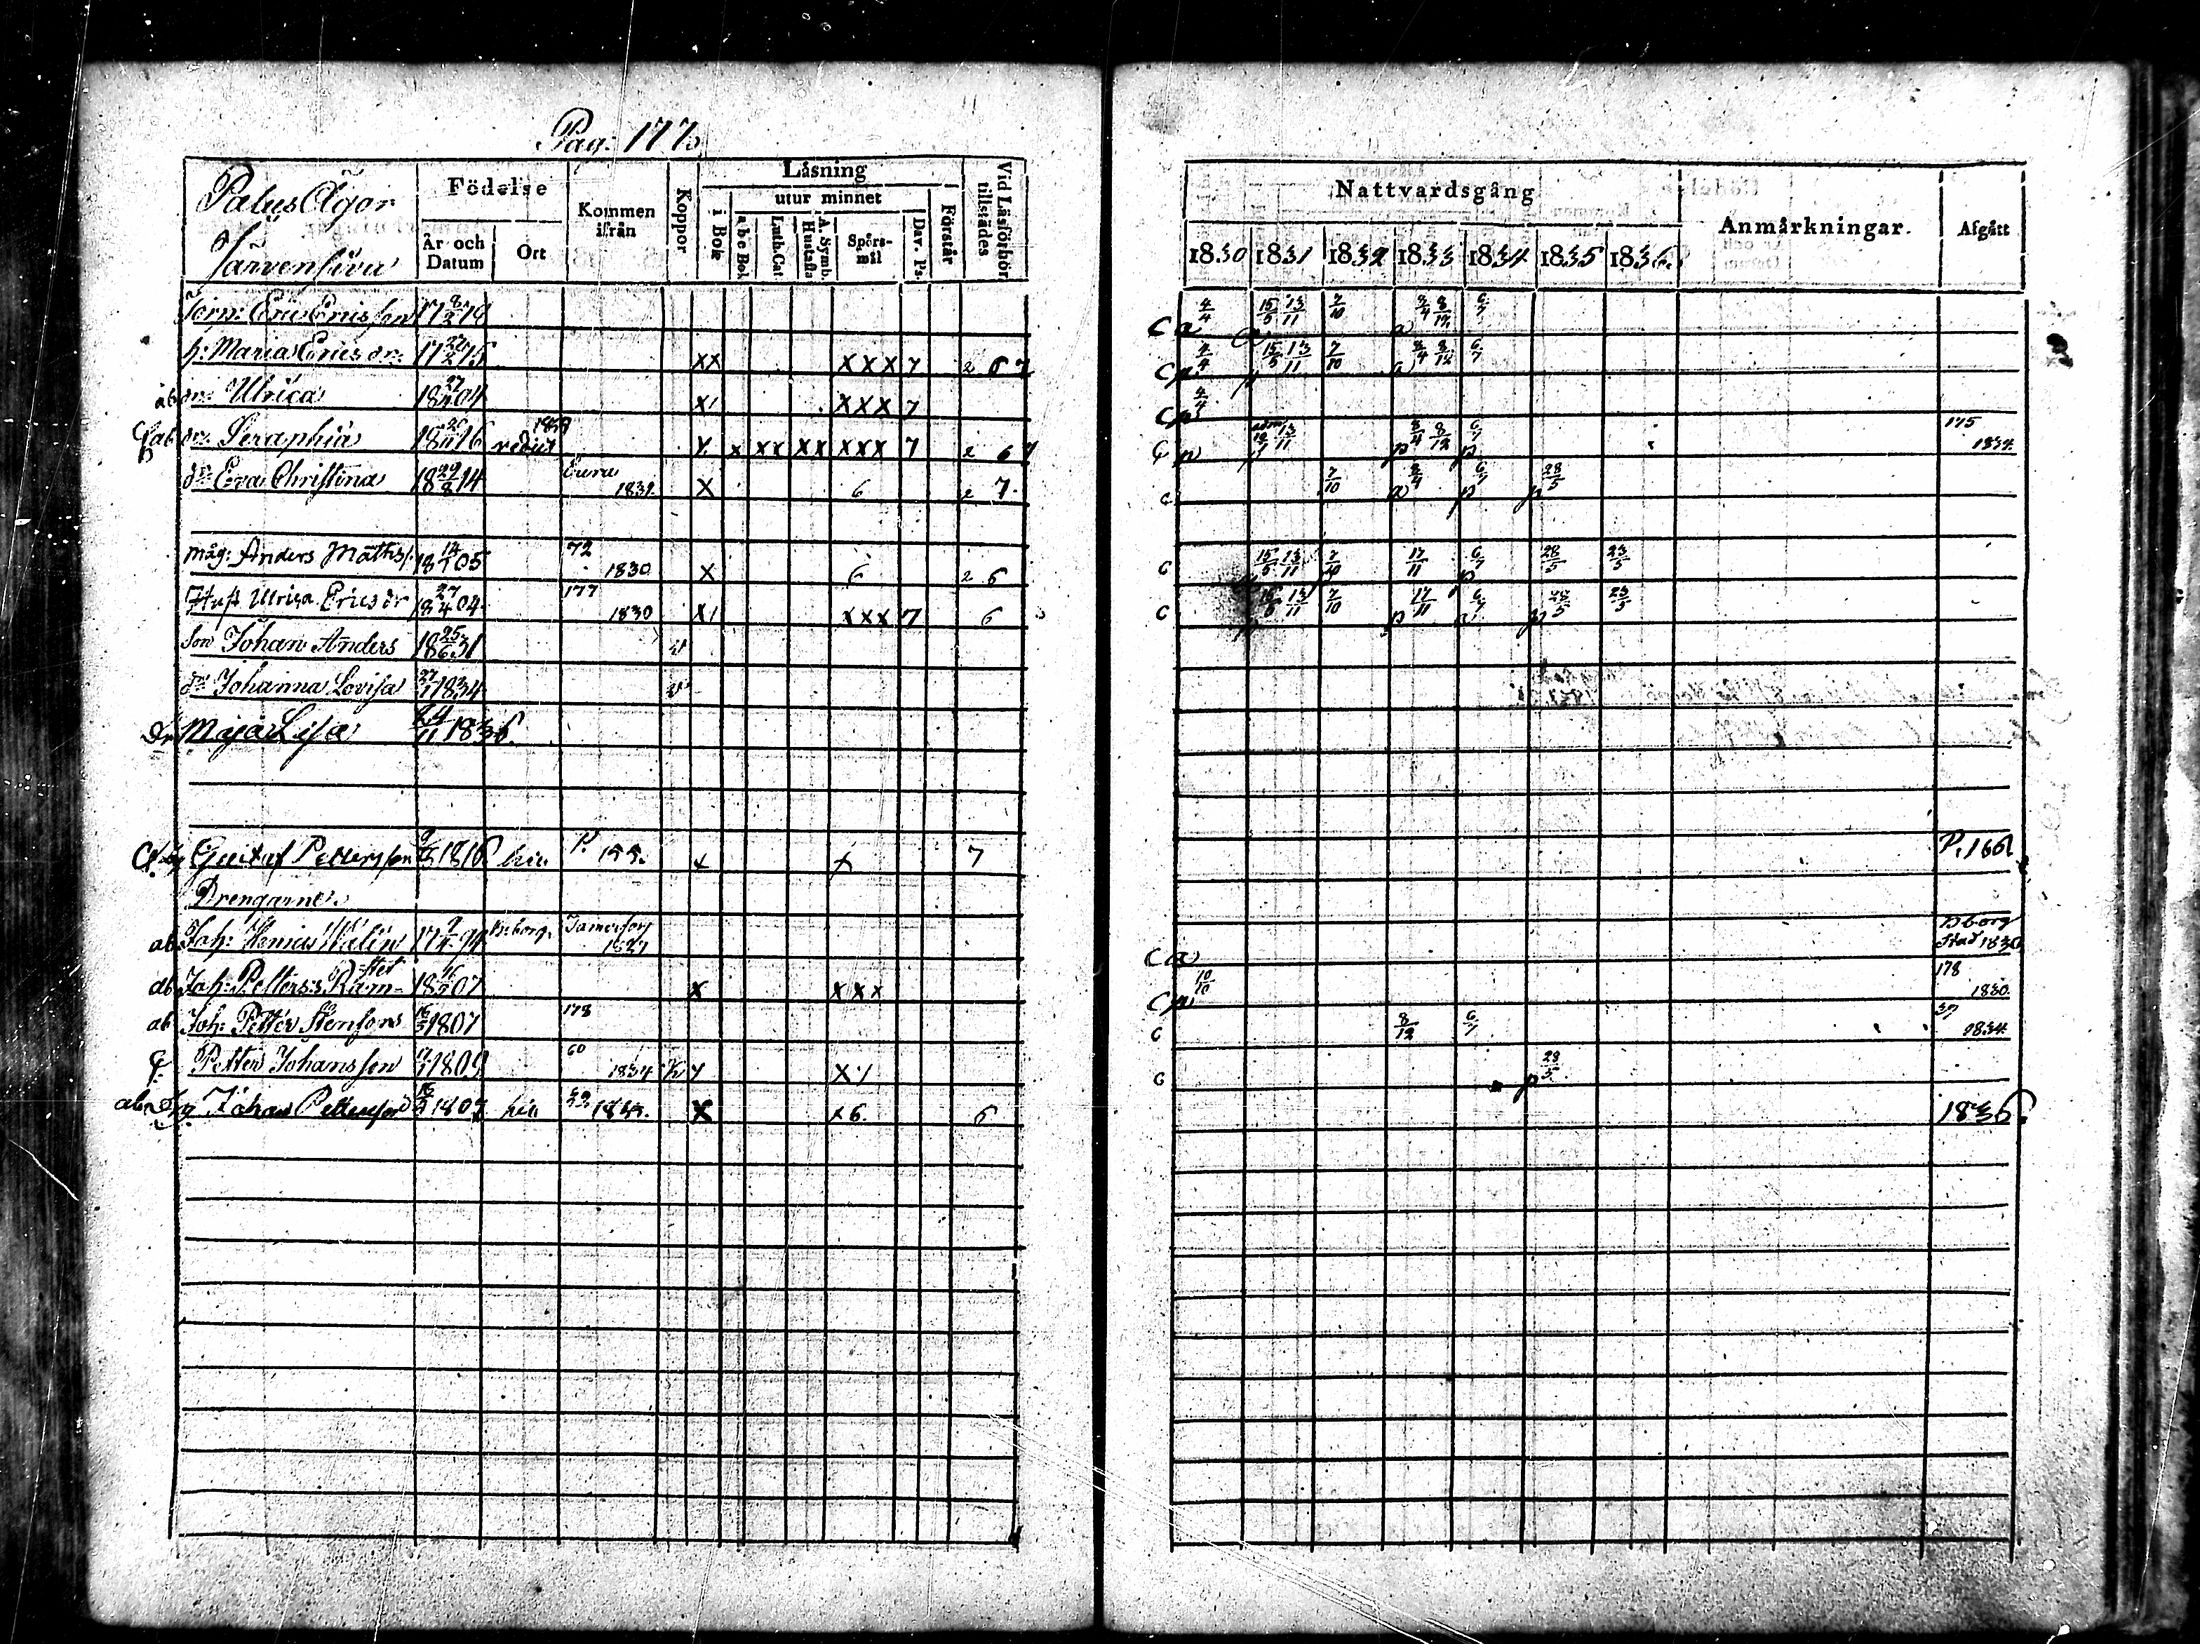 Pag: 177
Palus Ägor
Järvensivu
Födelse
År och Datum
Ort
Kommen ifrån
Koppor
Läsning
i Bok
utur minnet
a b c Bok
Luth. Cat.
Hustafla
A. Symb.
Spörs-mål
Dav. Ps.
Förstår
Vid Läsförhör tillstädes
Nattvardsgång
1830 1831 1832 1833 1834 1835 1836
Anmärkningar.
Afgått
Torp: Eric Ericsson 17 8/2 78 C a 4/4 15/5 13/11 7/10 a 8/4 8/12 6/7
h: Maria Erics dr: 17 27/2 75 xx xxx 7 2 6 7 C p 4/4 15/5 13/11 7/10 a 8/4 8/12 6/7
ab dr: Ulrica 18 27/4 04 x1 xxx 7 C p 4/4
ab dr: Seraphia 18 26/11 16 x x xx xx xxx 7 2 6 7 13/11 p 8/4 8/12 p 6/7 175 1834.
dr: Eva Christina 18 29/8 14 Eura 1831. x 6 2 7. c 7/10 a 8/4 p 6/7 p 28/5
måg: Anders Maths: 18 14/1 05 72 1830 x 6 2 6 c 15/5 13/11 7/10 17/11 p 6/7 28/5 23/5
Hust Ulrica Erics dr 18 27/4 04 177 1830 x1 xxx 7 6 c 15/5 13/11 7/10 p 17/11 a 6/7 p 28/5 23/5
Son Johan Anders 18 25/6 31 v
dr: Johanna Lovisa 27/1 1834 v
dr Maja Lisa 24/11 1836.
Gustaf Pettersson 1816 hic P. 155. x x 7 P. 166
Drengarne:
ab Joh: Walin 17 9/4 94 B:borg. 1827 C a Bborg Stad 1830
ab Joh: Petters: Ram-stet 18 16/2 07 x xxx C p 10/10 178 1830.
ab Joh: Petter Stensons 16/3 1807 178 c 8/12 6/7 37 1834.
Petter Johansson 17/1 1809 60 1834 x1 c p 28/5
Johan Pettersson 16/2 1807 hic x x 6. 6 1836.